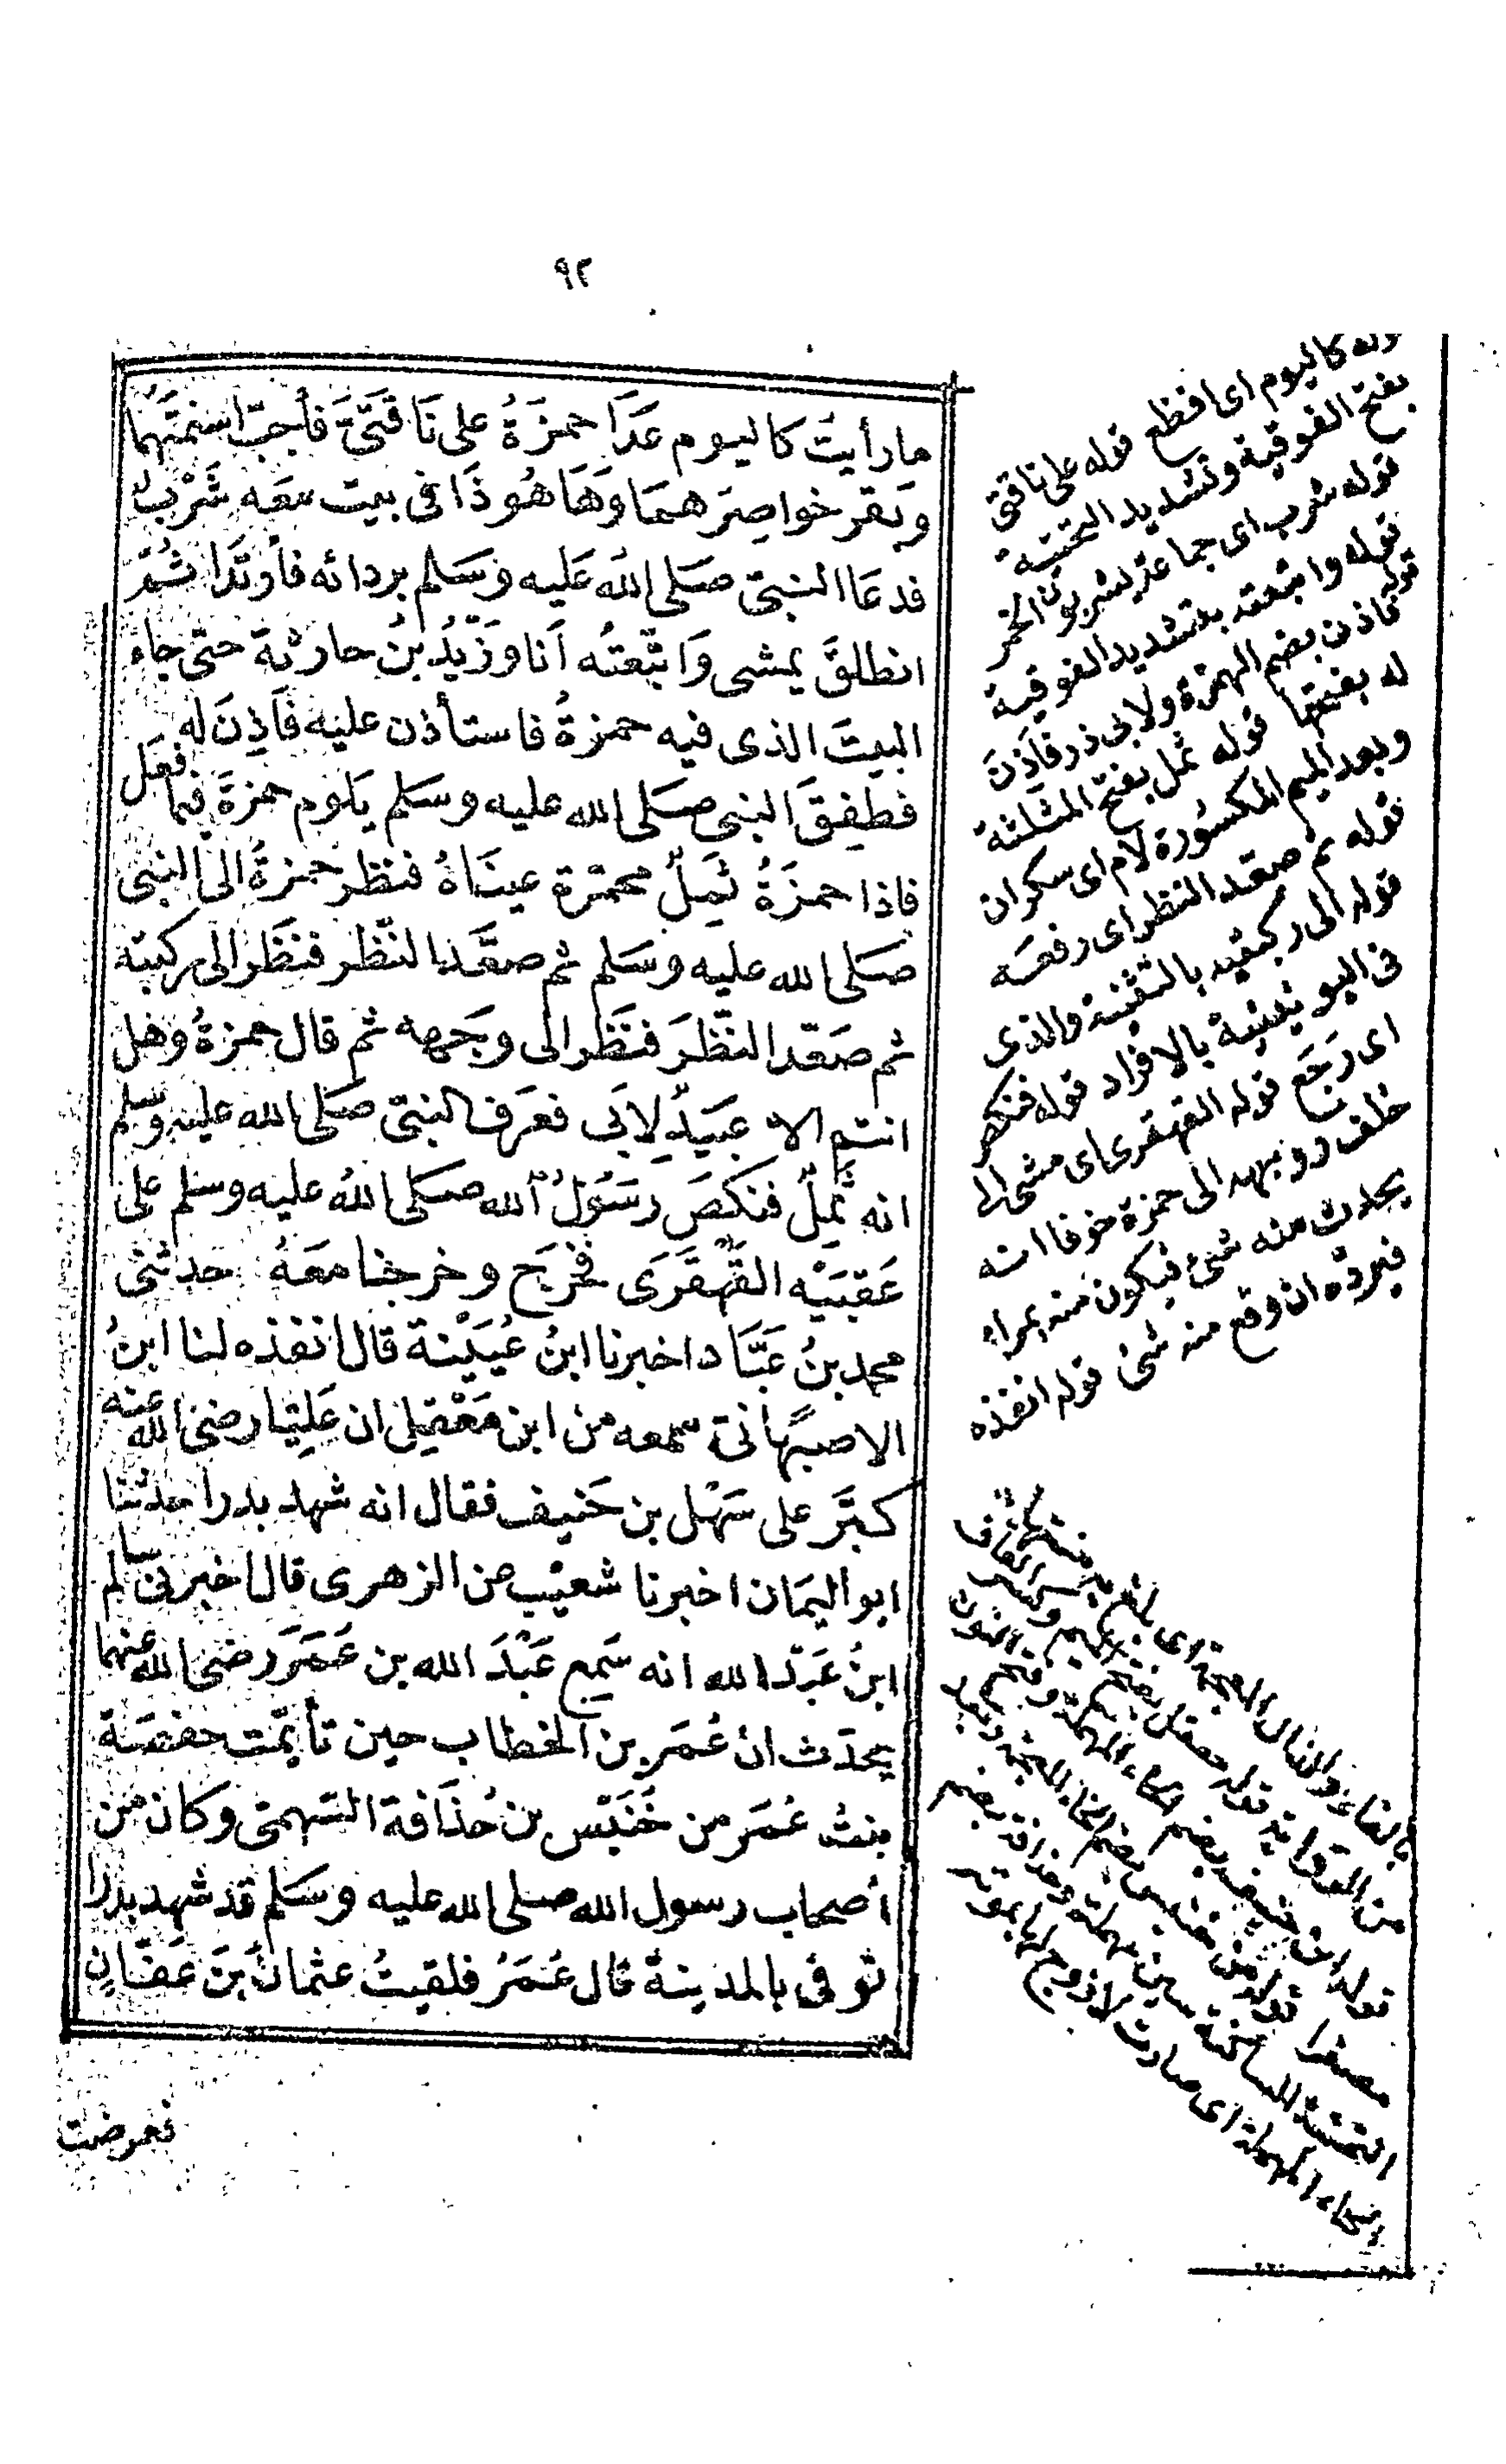 ٩٢
ما رأيتُ كاليوم عَدَا حمزَةُ على نَاقَتَيَّ فأجبّ اسنمتَهُمَا
وبَقر خواصِرَهمَا وَهَا هُو ذَا فى بيت معَه شَرْبٌ
فدعَا النبىّ صَلى اللهُ عَليه وَسَلم بردائه فأرتَدَا ثُمّ
انطلقَ يمشى وَاتّبَعتُه أنا وزَيْدُ بنُ حارثة حتى جاءَ
البيتَ الذى فيه حمزةُ فاستأذن عليه فَأذِنَ له
فطفِقَ النبى صَلى الله عليه وسَلم يَلوم حمزةَ فيما فَعَل
فاذا حمزَةُ ثَمِلٌ محمرّة عينَاهُ فنظر حمزةُ الى النبى
صَلى الله عليه وسَلم ثم صعَّدَ النّظر فنظَر الى ركبته
ثم صَعّد النّظرَ فنَظَر الى وجَهه ثم قال حمزةُ وهَل
انتم الا عبَيدٌ لِأبَى فعَرَف النبىّ صَلى الله عليه وسلم
انه ثَمِلٌ فنكَصَ رسَوُلُ الله صَلى اللهُ عليه وسلم على
عَقبَيْه القَهْقَرَى فخرَج وخرجنا معَهُ حَدثنى
محمد بنُ عَبَّاد اخبرنا ابنُ عُيَيْنة قال انفذه لنا ابنُ
الاصبَهانىّ سمعه من ابن مَعْقِل ان عَليّا رضىَ الله عنه
كبَّر على سَهْل بن حَنيف فقال انه شهد بدرا حدثنا
ابو اليَمان اخبرنا شعيْب عن الزهرى قال اخبرنى سالم
ابنُ عَبْد الله انه سَمِع عَبْدَ الله بن عُمَرَ رضى الله عنهما
يحدّث ان عُمَر بن الخطاب حين تأيّمت حفصَة
بنتُ عُمَر من خُنَيْس بن حُذَافة السّهمىّ وكان من
أصحاب رسول الله صلى الله عليه وسَلم قد شهِد بدرا
توفى بالمدينة قال عُمَرُ فلقيتُ عثمانَ بَنَ عَفّانٍ
فعرضت
كاليوم اى افظع قوله على ناقتى
بفتح الفوقية وتشديد التحتية
قوله شرب اى جماعة يشربون الخمر
قوله واتبعته بتشديد الفوقية
قوله فاذن بضم الهمزة ولابى ذر فأذن
له بفتحها قوله ثمل بفتح المثلثة
وبعد الميم المكسورة لام اى سكران
قوله ثم صعّد النظر اى رفعه
قوله الى ركبتيه بالتثنية والذى
فى اليونينية بالافراد قوله فنكص
اى رَجَع قوله القهقرى اى مشى الى
خلف ووجهه الى حمزة خوفا انه
يحدث منه شئ فيكون منه بمراء
فيردّه ان وقع منه شئ قوله انفذه
بالفاء والذال المعجمة اى
من قوله معقل بفتح الميم وكسر القاف
قوله ابن حنيف بضم الحاء المهملة وفتح النون
مصغرا قوله من خنيس بضم الخاء المعجمة
التحتية الساكنة سين مهملة وحذافة بضم
الحاء المهملة اى صارت لا زوج لها بموته